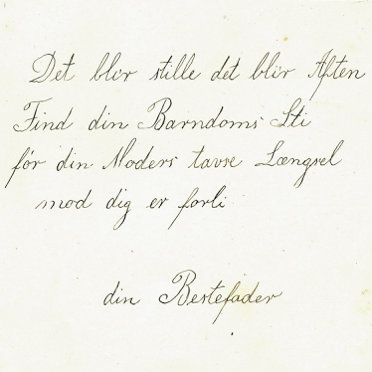 Det blir stille det blir Aften
Find din Barndoms Sti
før din Moders tavse Længsel
mod dig er forbi
din Bestefader